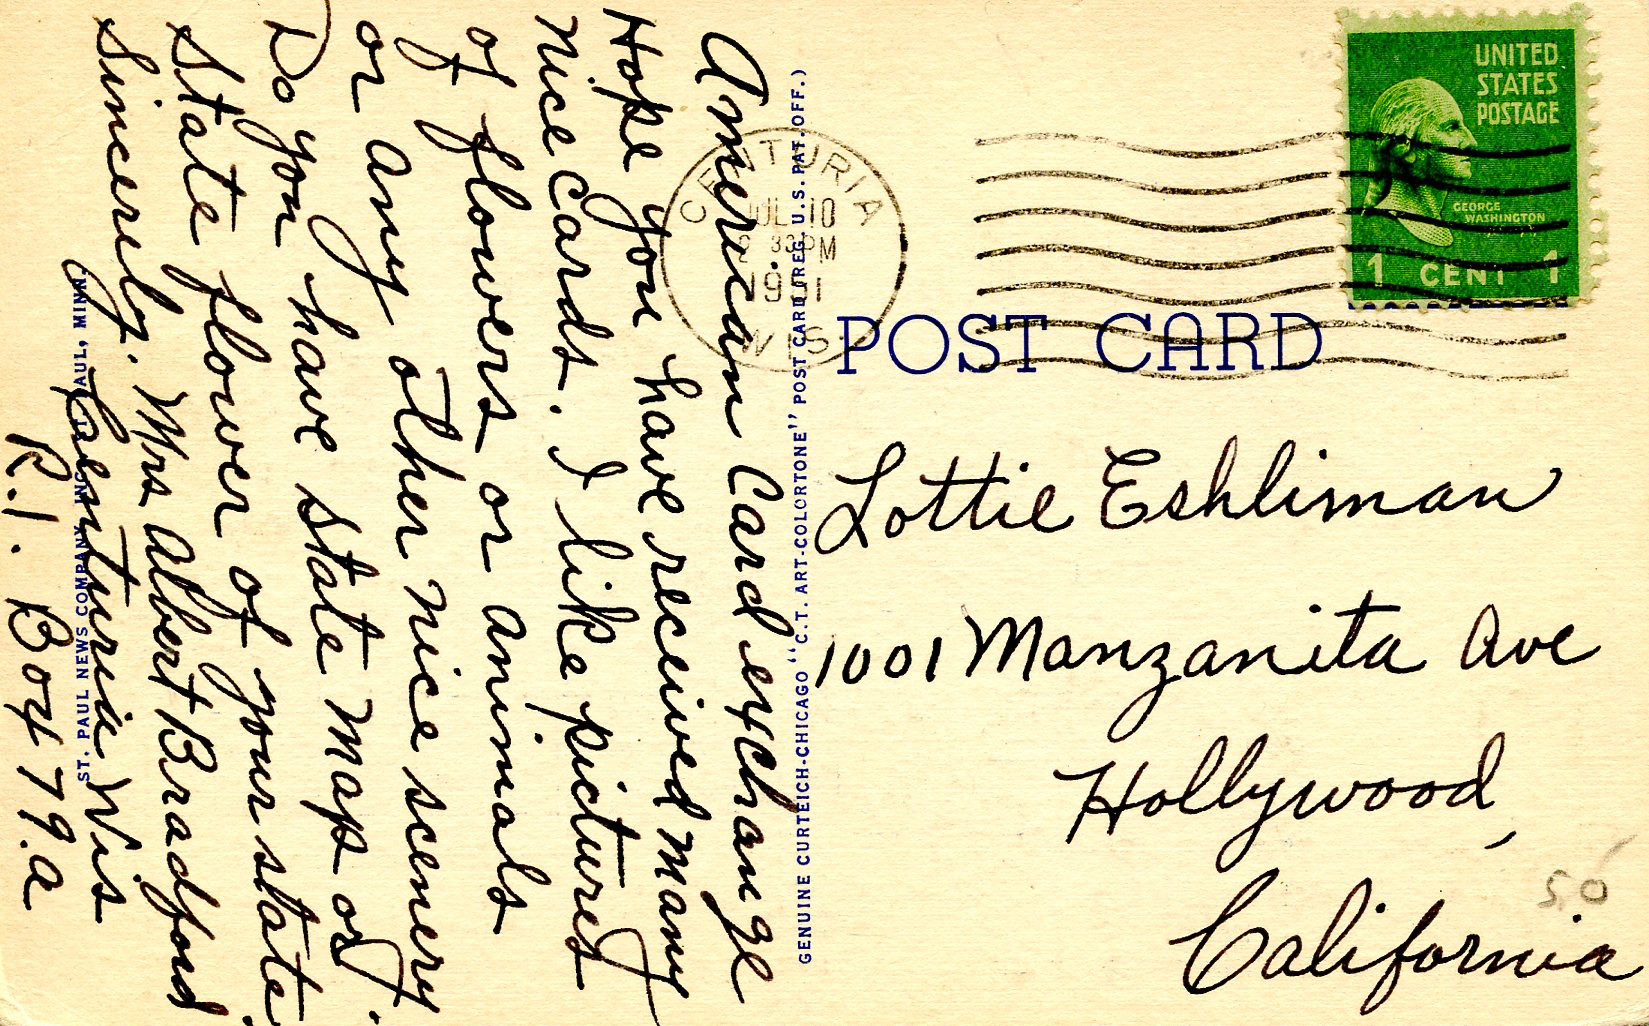 American Card exchange
Hope you have received many
nice cards. I like pictures
of flowers or animals
or any other nice scenery.
Do you have state maps or
state flower of your state
Sincerely. Mrs Albert Bradford
Centuria Wis
R.1. Box 79.a
ST. PAUL NEWS COMPANY, INC., ST. PAUL, MINN.
GENUINE CURTEICH-CHICAGO "C.T. ART-COLORTONE" POST CARD (REG. U.S. PAT. OFF.)
CENTURIA
JUL 10
PM
WIS
UNITED
STATES
POSTAGE
GEORGE
WASHINGTON
1 CENT 1
POST CARD
Lottie Eshliman
1001 Manzanita Ave
Hollywood,
California
50